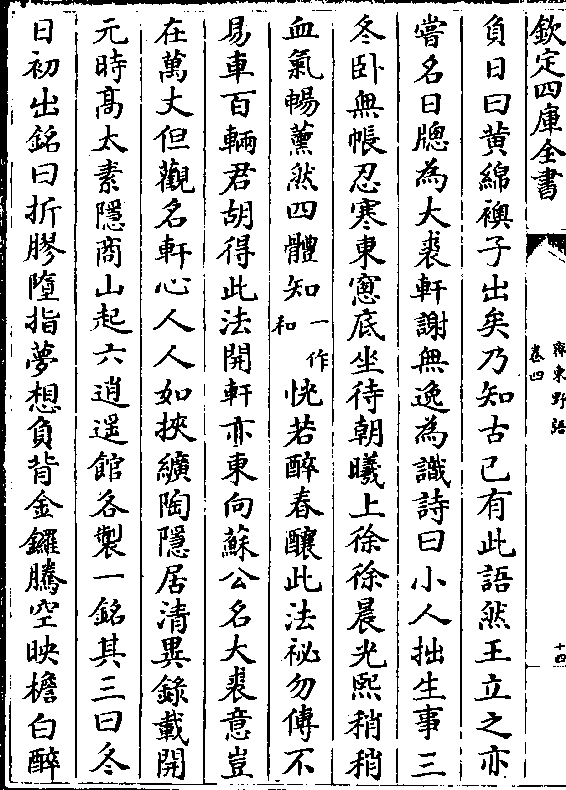 欽定四庫全書
齊東野語
卷四
十四
負日曰黄綿襖子出矣乃知古已有此語然王立之亦
嘗名日牕為大裘軒謝無逸為識詩曰小人拙生事三
冬卧無帳忍寒東窻底坐待朝曦上徐徐晨光熙稍稍
血氣暢薰然四體知一作和恍若醉春釀此法祕勿傳不
易車百輛君胡得此法開軒亦東向蘇公名大裘意豈
在萬丈但觀名軒心人人如挾纊陶隱居清異錄載開
元時髙太素隱商山起六逍遥館各製一銘其三曰冬
日初出銘曰折膠墮指夢想負背金鑼騰空映檐白醉